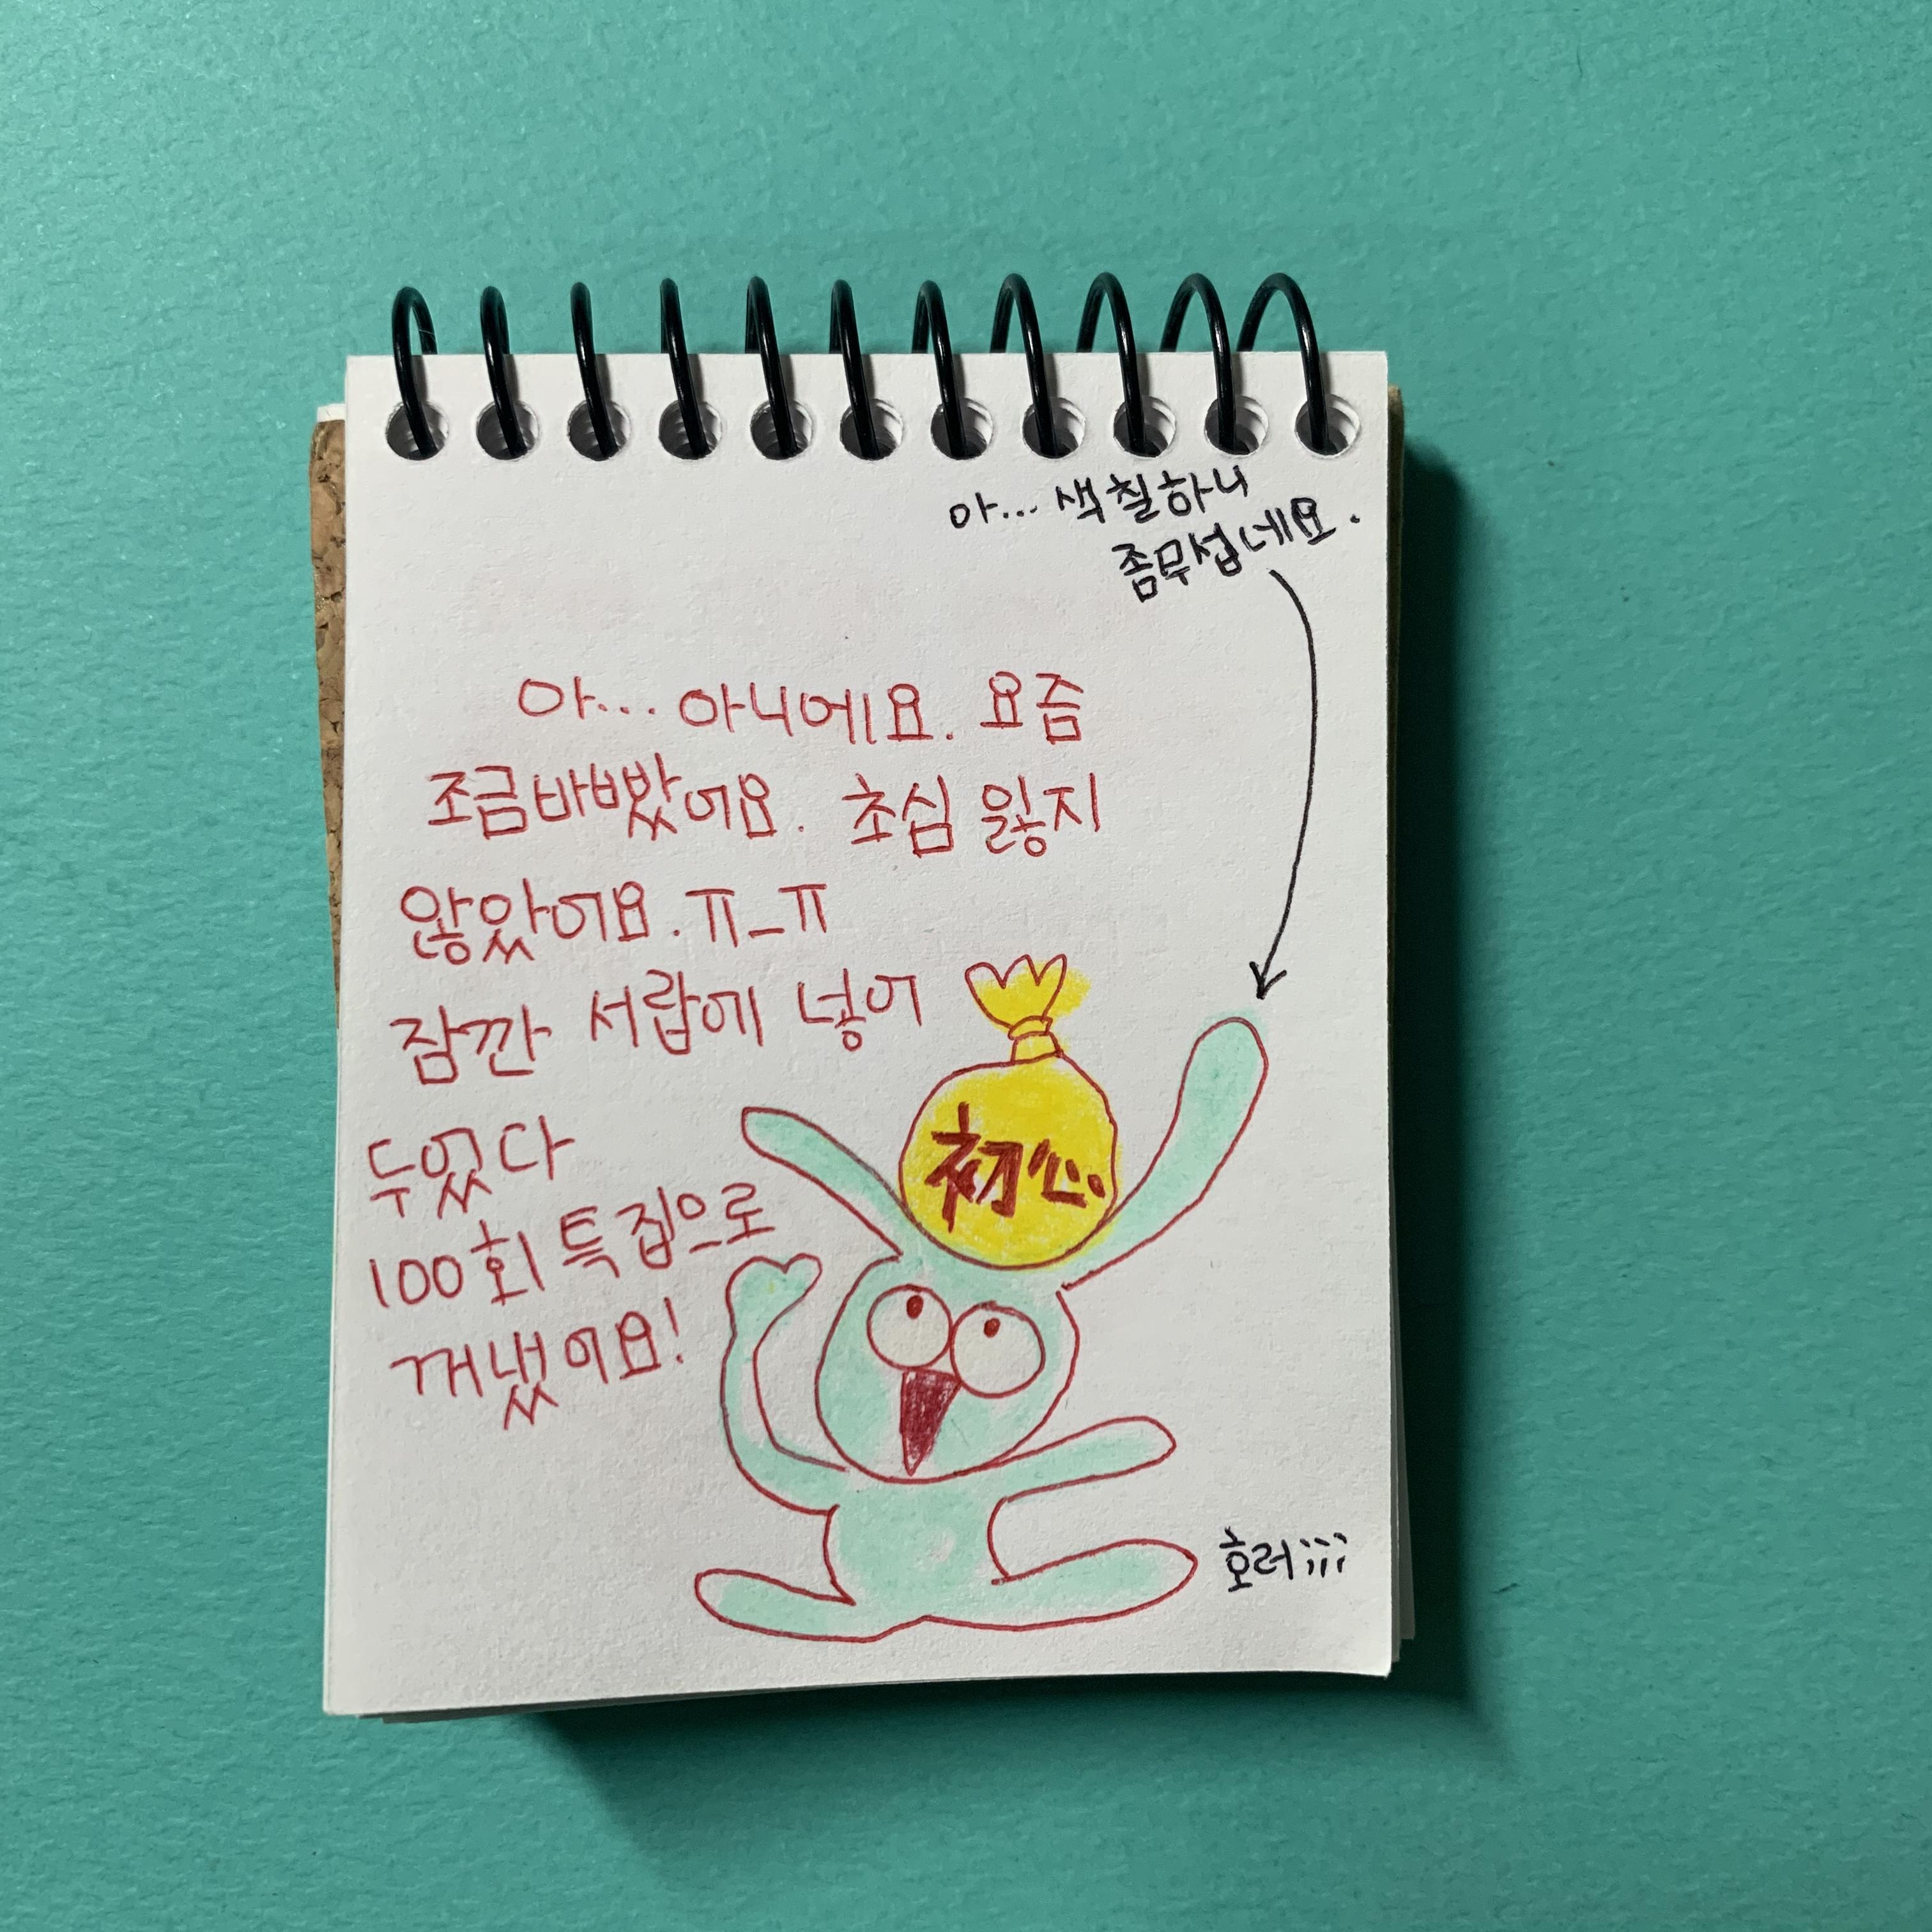 아... 색칠하니
좀무섭네요.
아... 아니에요. 요즘
조금바빴어요. 초심 잃지
않았어요. ㅠ_ㅠ
잠깐 서랍에 넣어
두었다
100회 특집으로
꺼냈어요!
初心.
호러;;;